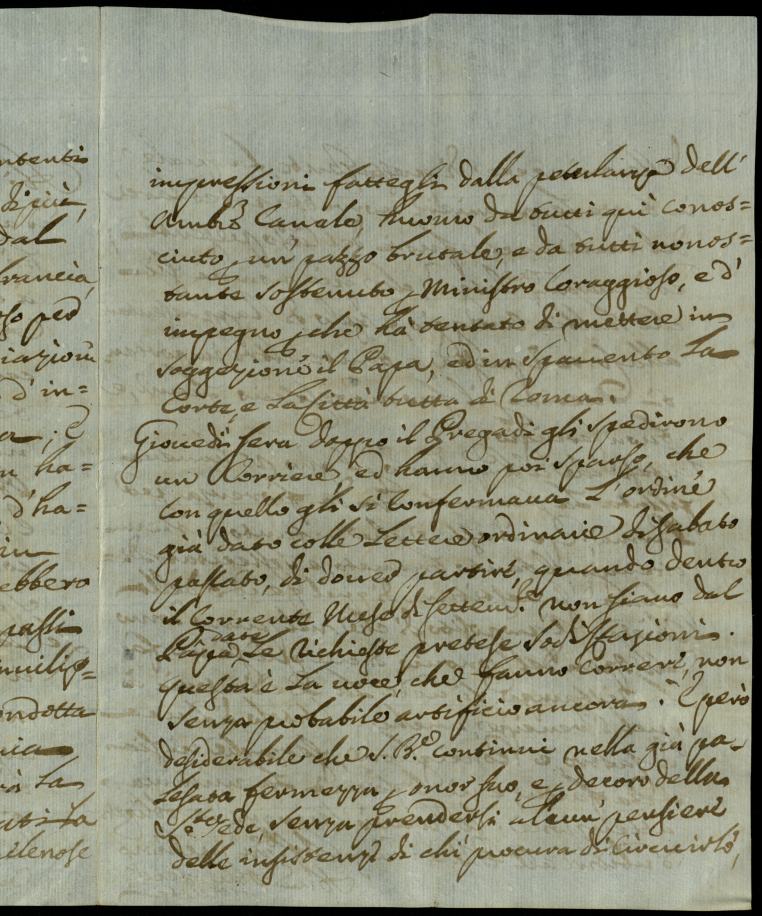 ntenti
di più,
dal
francia,
so per
iazioni
d'in=
n ha=
d'ha=
in
ebbero
passi
ondotta
nia
rà La
uelenose
impressioni fattegli dalla petulanza dell'
Ambr. Canale, huomo da tutti qui conos=
ciuto p un' pazzo brutale, e da tutti nonos=
tante sostenuto p Ministro Coraggioso, e d'
impegno, che hà tentato di mettere in
soggezione il Papa, ed in spauento La
Corte, e La Città tutta di Roma.
Giouedì sera doppo il Pregadi gli spedirono
un Corriere, ed hanno poi sparso, che
con quello gli si Confermaua L'ordine
già dato colle Lettere ordinarie di sabato
passato, di douer partire, quando dentro
il Corrente Mese di Settem.re non siano dal
Papa date Le richieste pretese sodisfazioni.
questa è La uoce, che fanno Correre, non
senza probabile artificio ancora. E però
desiderabile che S. B.e continui nella già pa=
lesata fermezza p onor suo, e p decoro della
S.ta Sede, senza prendersi alcun' pensiere
delle insistenze di chi procura di Circuirlo,